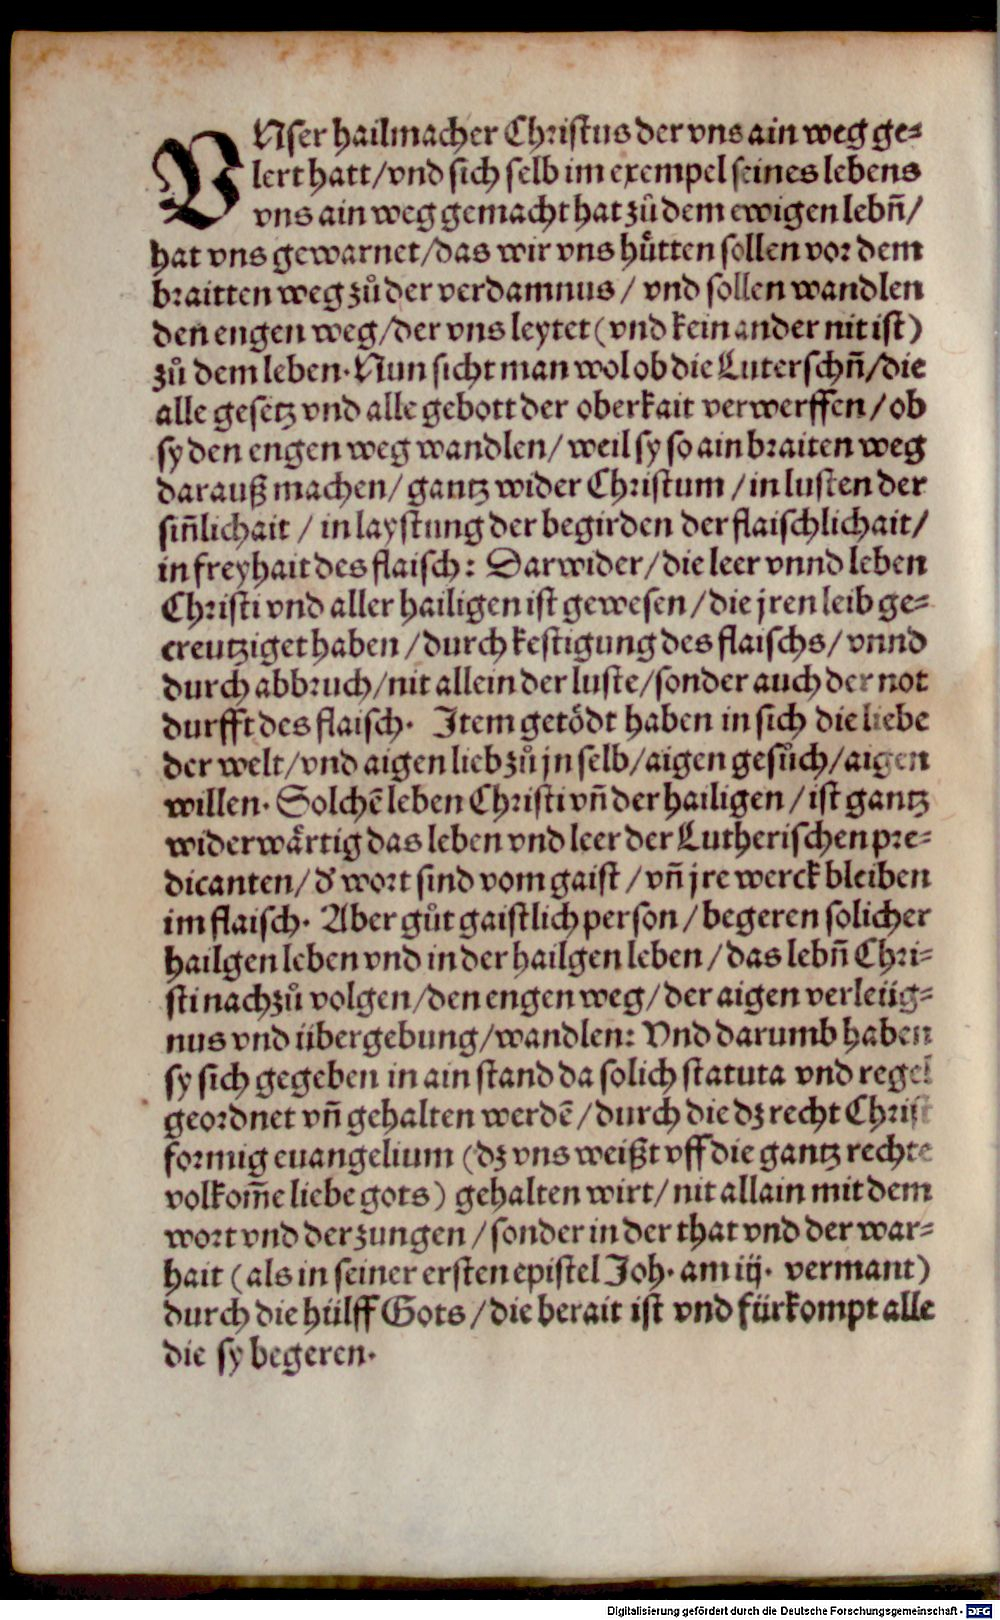 VNser hailmacher Christus der vns ain weg ge-
lert hatt/vnd sich selb im exempel seines lebens
vns ain weg gemacht hat zů dem ewigen lebn̄/
hat vns gewarnet/das wir vns hütten sollen vor dem
braitten weg zů der verdamnus / vnd sollen wandlen
den engen weg/der vns leytet (vnd kein ander nit ist)
zů dem leben. Nun sicht man wol ob die Luterschn̄/die
alle gesetz vnd alle gebott der oberkait verwerffen / ob
sy den engen weg wandlen/ weil sy so ain braiten weg
darauß machen/ gantz wider Christum / in lusten der
sin̄lichait / in laystung der begirden der flaischlichait/
in freyhait des flaisch: Darwider/die leer vnnd leben
Christi vnd aller hailigen ist gewesen/die jren leib ge-
creutziget haben /durch kestigung des flaischs/ vnnd
durch abbruch/nit allein der luste/sonder auch der not
durfft des flaisch. Item getödt haben in sich die liebe
der welt/vnd aigen lieb zů jn selb/aigen gesůch/aigen
willen. Solchē leben Christi vn̄ der hailigen / ist gantz
widerwärtig das leben vnd leer der Lutherischen pre-
dicanten/ d' wort sind vom gaist / vn̄ jre werck bleiben
im flaisch. Aber gůt gaistlich person / begeren solicher
hailgen leben vnd in der hailgen leben /das lebn̄ Chri-
sti nachzů volgen/den engen weg/der aigen verleüg-
nus vnd übergebung/wandlen: Vnd darumb haben
sy sich gegeben in ain stand da solich statuta vnd regel
geordnet vn̄ gehalten werdē /durch die dz recht Christ
formig euangelium (dz vns weißt vff die gantz rechte
volkom̄e liebe gots) gehalten wirt/ nit allain mit dem
wort vnd der zungen /sonder in der that vnd der war-
hait (als in seiner ersten epistel Joh. am iij. vermant)
durch die hülff Gots /die berait ist vnd fürkompt alle
die sy begeren.
Digitalisierung gefördert durch die Deutsche Forschungsgemeinschaft - DFG